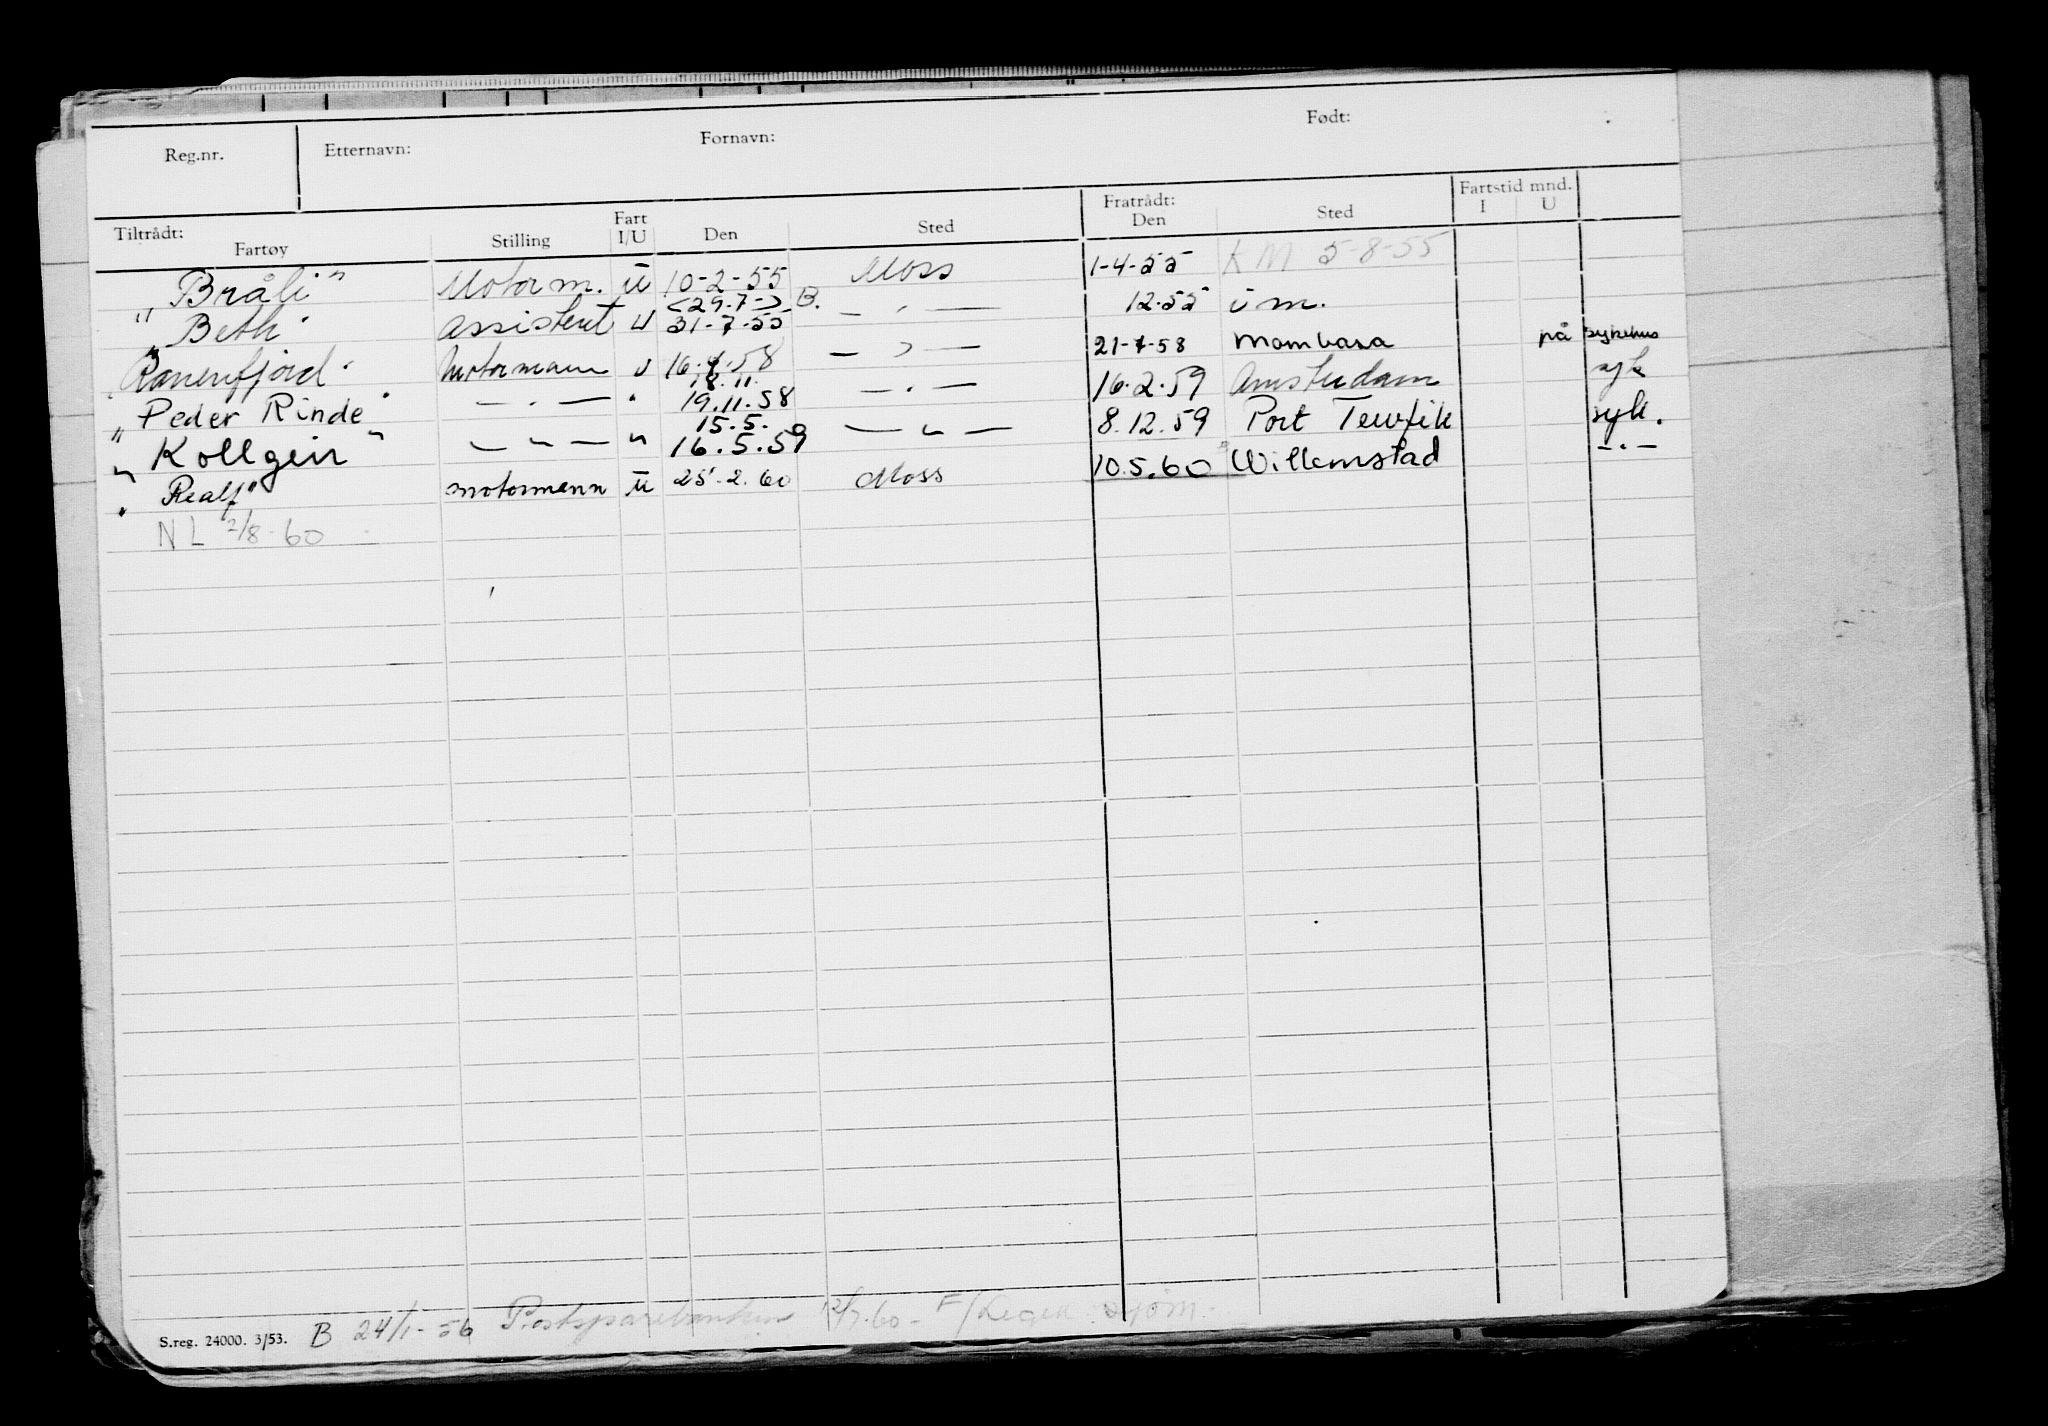 Reg.nr. Etternavn: Fornavn: Født:
Tiltrådt: Fartøy Stilling Fart I/U Den Sted Fratrådt: Den Sted Fartstid mnd. I U
"Bråli" Motorm. U 10-2-55 Moss 1-4-55 KM 5-8-55
<29.7-> B.
"Beth" Assistent U 31-7-55 — " — 12.55 i m.
"Ranenfjord" Motormann U 16.4.58 — " — 21-4-58 Mombasa på sykehus
18.11.
"Peder Rinde" — " — " 19.11.58 — " — 16.2.59 Amsterdam syk
15.5.
"Kollgeir" — " — " 16.5.59 — " — 8.12.59 Port Tewfik syk.
"Realf" motormann U 25.2.60 Moss 10.5.60 Willemstad — " —
NL 2/8-60
S.reg. 24000. 3/53. B 24/1-56 Postsparebanken 12/7.60-